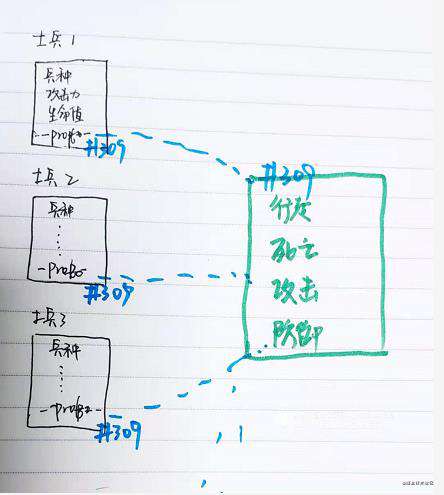 士兵1
兵种
攻击力
生命值
#309
士兵2
兵种
#309
士兵3
兵种
#309
#309
行走
死亡
攻击
防御